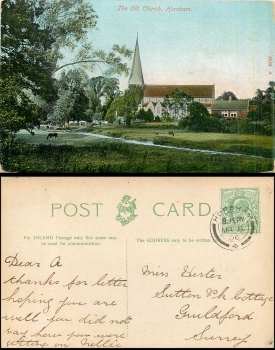 The Old Church, Horsham.
POST CARD
For INLAND Postage only this space may be used for communication.
The ADDRESS only to be written
HORSHAM
Dear A
thanks for letter
hoping you are
well you did not
say how you were
getting on Nellie
Miss Hester
Sutton Pk Cottage
Guildford
Surrey